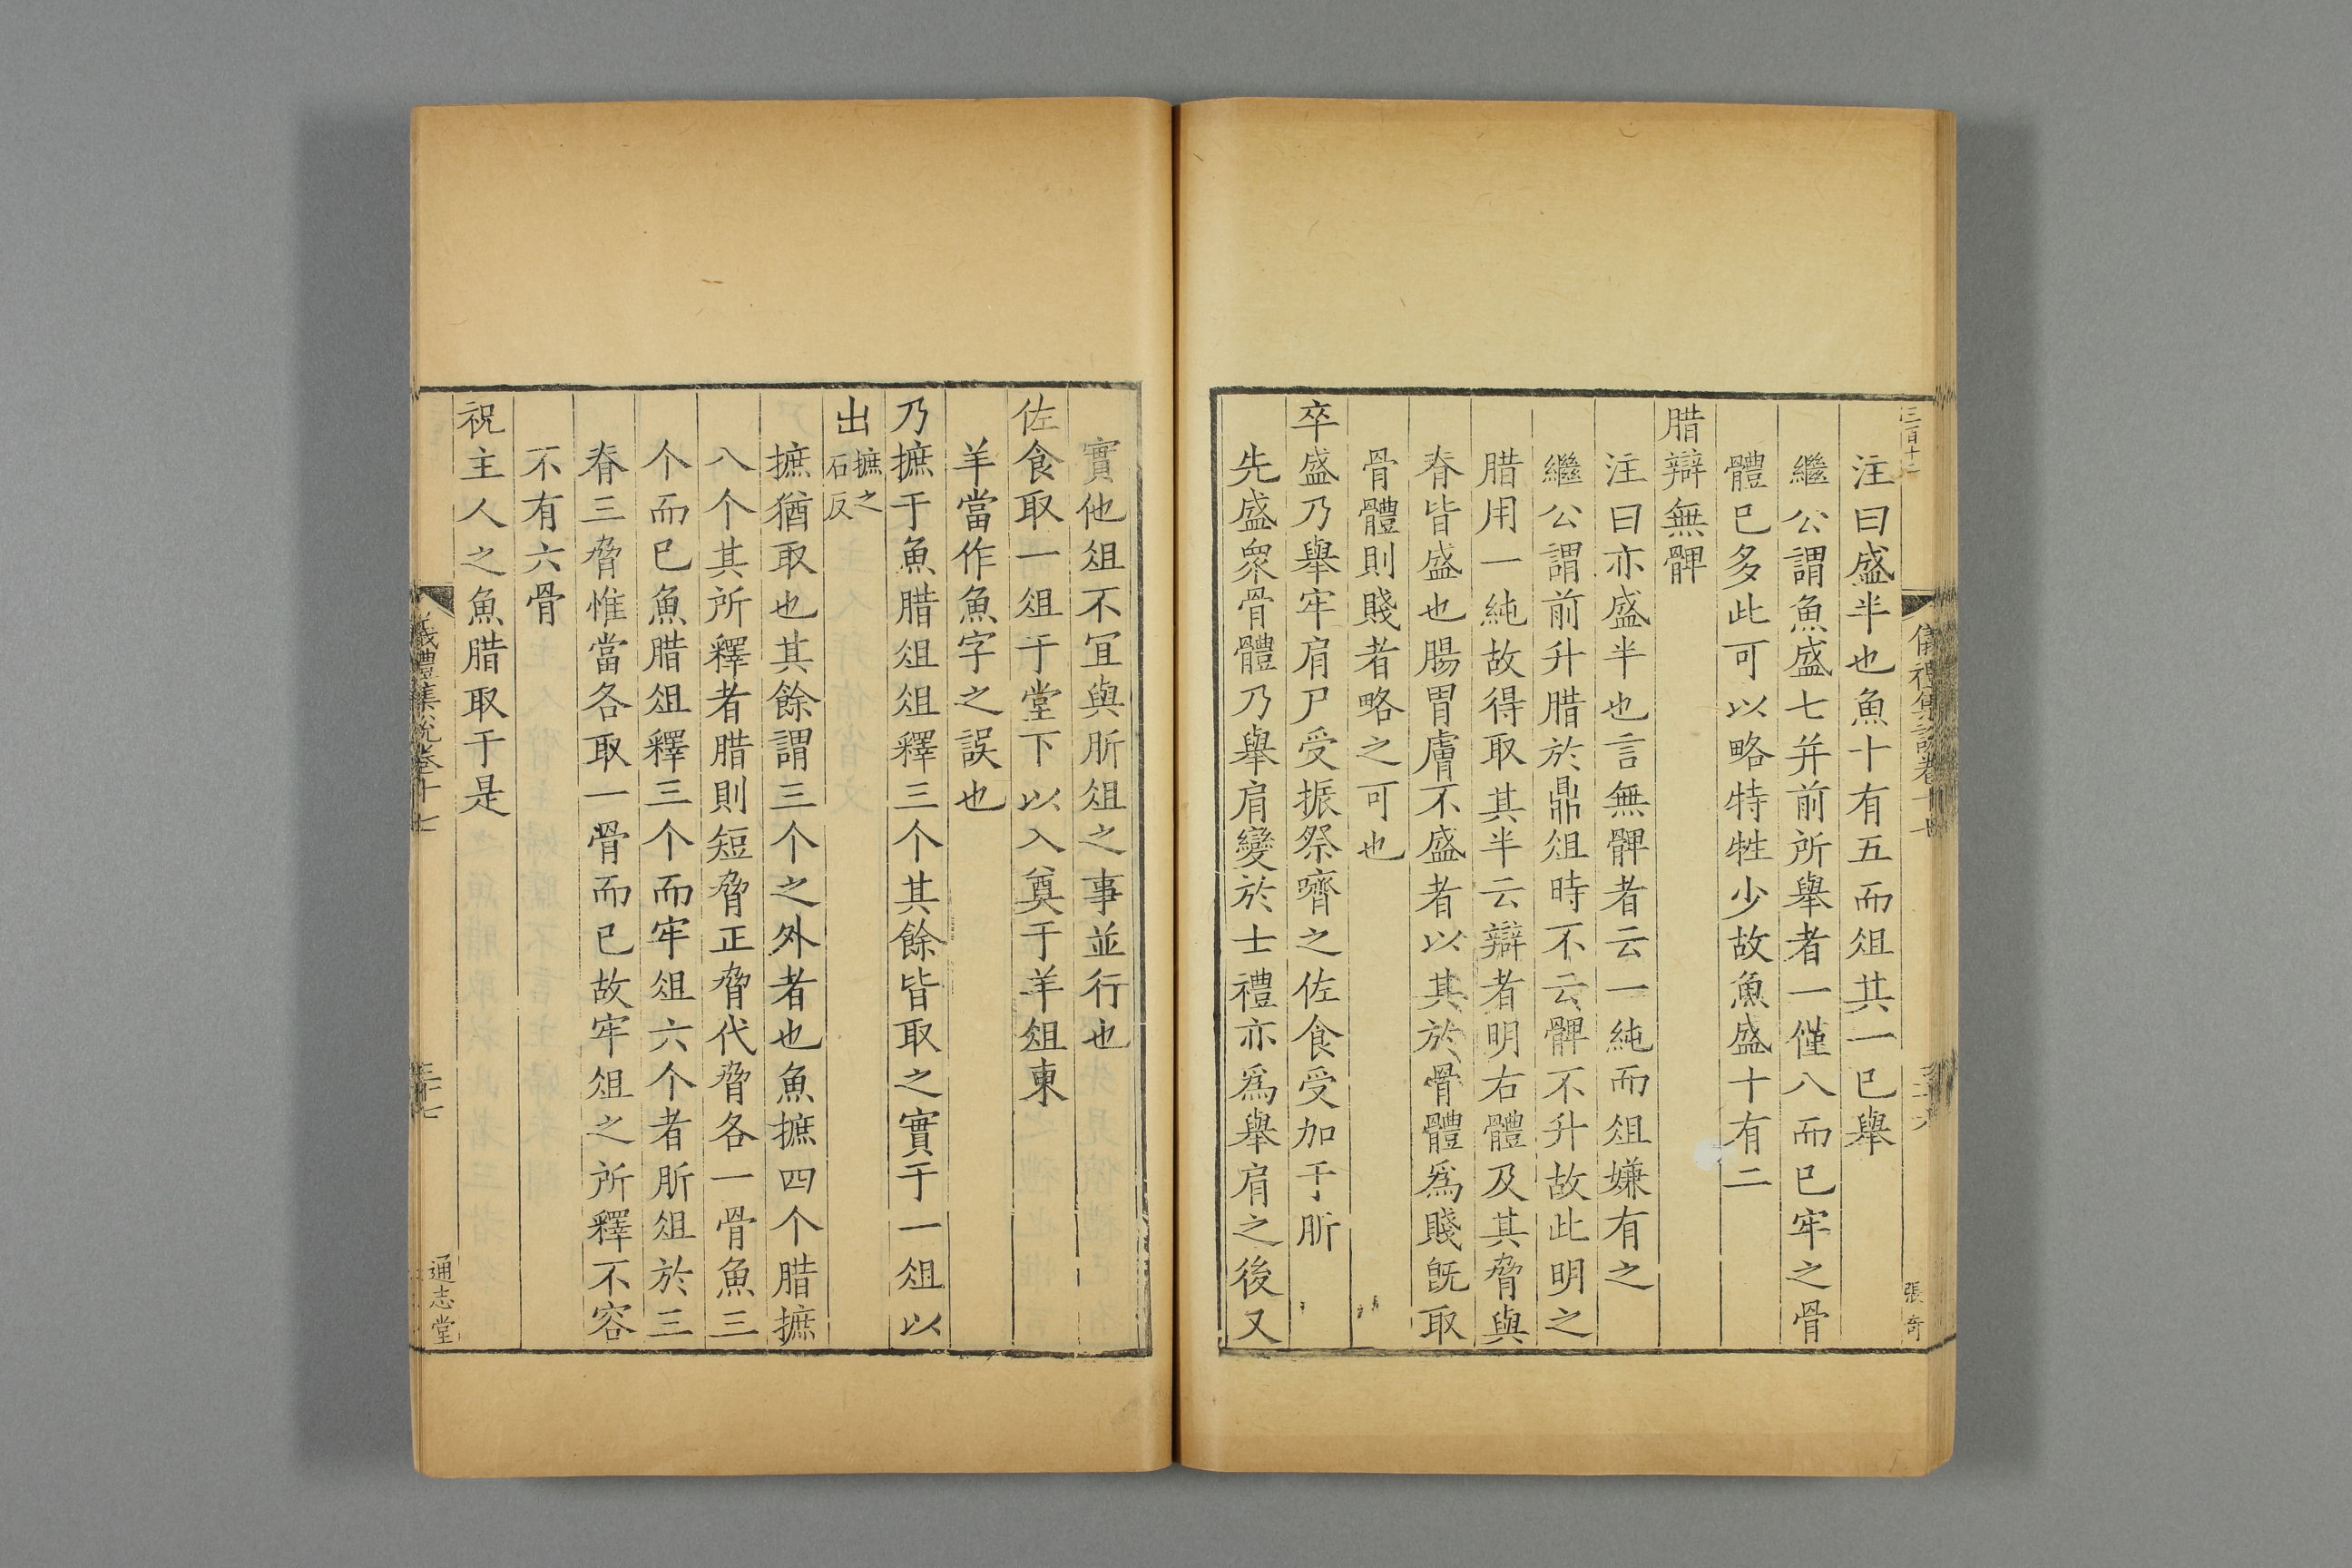 三百十二
儀禮集說卷十七
三十六
張奇
注曰盛半也魚十有五而俎其一已舉
繼公謂魚盛七并前所舉者一僅八而已牢之骨
體已多此可以略特牲少故魚盛十有二
腊辯無髀
注曰亦盛半也言無髀者云一純而俎嫌有之
繼公謂前升腊於鼎俎時不云髀不升故此明之
腊用一純故得取其半云辯者明右體及其脅與
脊皆盛也腸胃膚不盛者以其於骨體爲賤旣取
骨體則賤者略之可也
卒盛乃舉牢肩尸受振祭嚌之佐食受加于肵
先盛衆骨體乃舉肩變於士禮亦爲舉肩之後又
實他俎不冝與肵俎之事並行也
佐食取一俎于堂下以入奠于羊俎東
羊當作魚字之誤也
乃摭于魚腊俎俎釋三个其餘皆取之實于一俎以
出摭之石反
摭猶取也其餘謂三个之外者也魚摭四个腊摭
八个其所釋者腊則短脅正脅代脅各一骨魚三
个而已魚腊俎釋三个而牢俎六个者肵俎於三
脊三脅惟當各取一骨而已故牢俎之所釋不容
不有六骨
祝主人之魚腊取于是
儀禮集說卷十七
三十七
通志堂